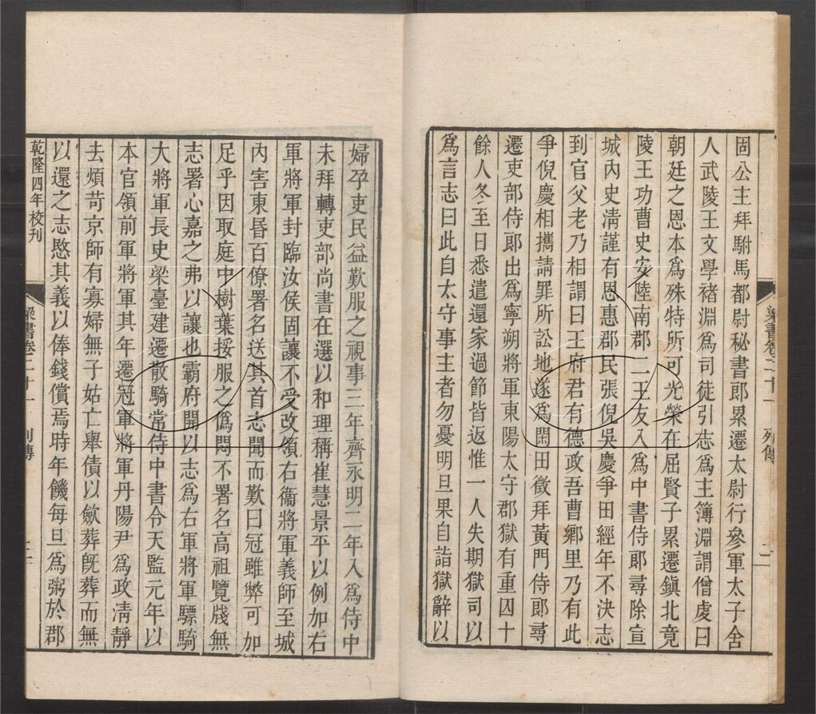 固公主拜駙馬都尉秘書郎累遷太尉行參軍太子舍
人武陵王文學褚淵為司徒引志為主簿淵謂僧虔曰
朝廷之恩本為殊特所可光榮在屈賢子累遷鎮北竟
陵王功曹史安陸南郡二王友入為中書侍郎尋除宣
城內史清謹有恩惠郡民張倪吳慶爭田經年不決志
到官父老乃相謂曰王府君有德政吾曹鄉里乃有此
爭倪慶相攜請罪所訟地遂為閑田徵拜黃門侍郎尋
遷吏部侍郎出為寧朔將軍東陽太守郡獄有重囚十
餘人冬至日悉遣還家過節皆返惟一人失期獄司以
為言志曰此自太守事主者勿憂明旦果自詣獄辭以
婦孕吏民益歎服之視事三年齊永明二年入為侍中
未拜轉吏部尚書在選以和理稱崔慧景平以例加右
軍將軍封臨汝侯固讓不受改領右衞將軍義師至城
內害東昬百僚署名送其首志聞而歎曰冠雖弊可加
足乎因取庭中樹葉挼服之偽悶不署名高祖覽牋無
志署心嘉之弗以讓也霸府開以志為右軍將軍驃騎
大將軍長史梁臺建遷散騎常侍中書令天監元年以
本官領前軍將軍其年遷冠軍將軍丹陽尹為政清靜
去煩苛京師有寡婦無子姑亡舉債以斂葬既葬而無
以還之志愍其義以俸錢償焉時年饑每旦為粥於郡
乾隆四年校刊
梁書卷二十一 列傳
二